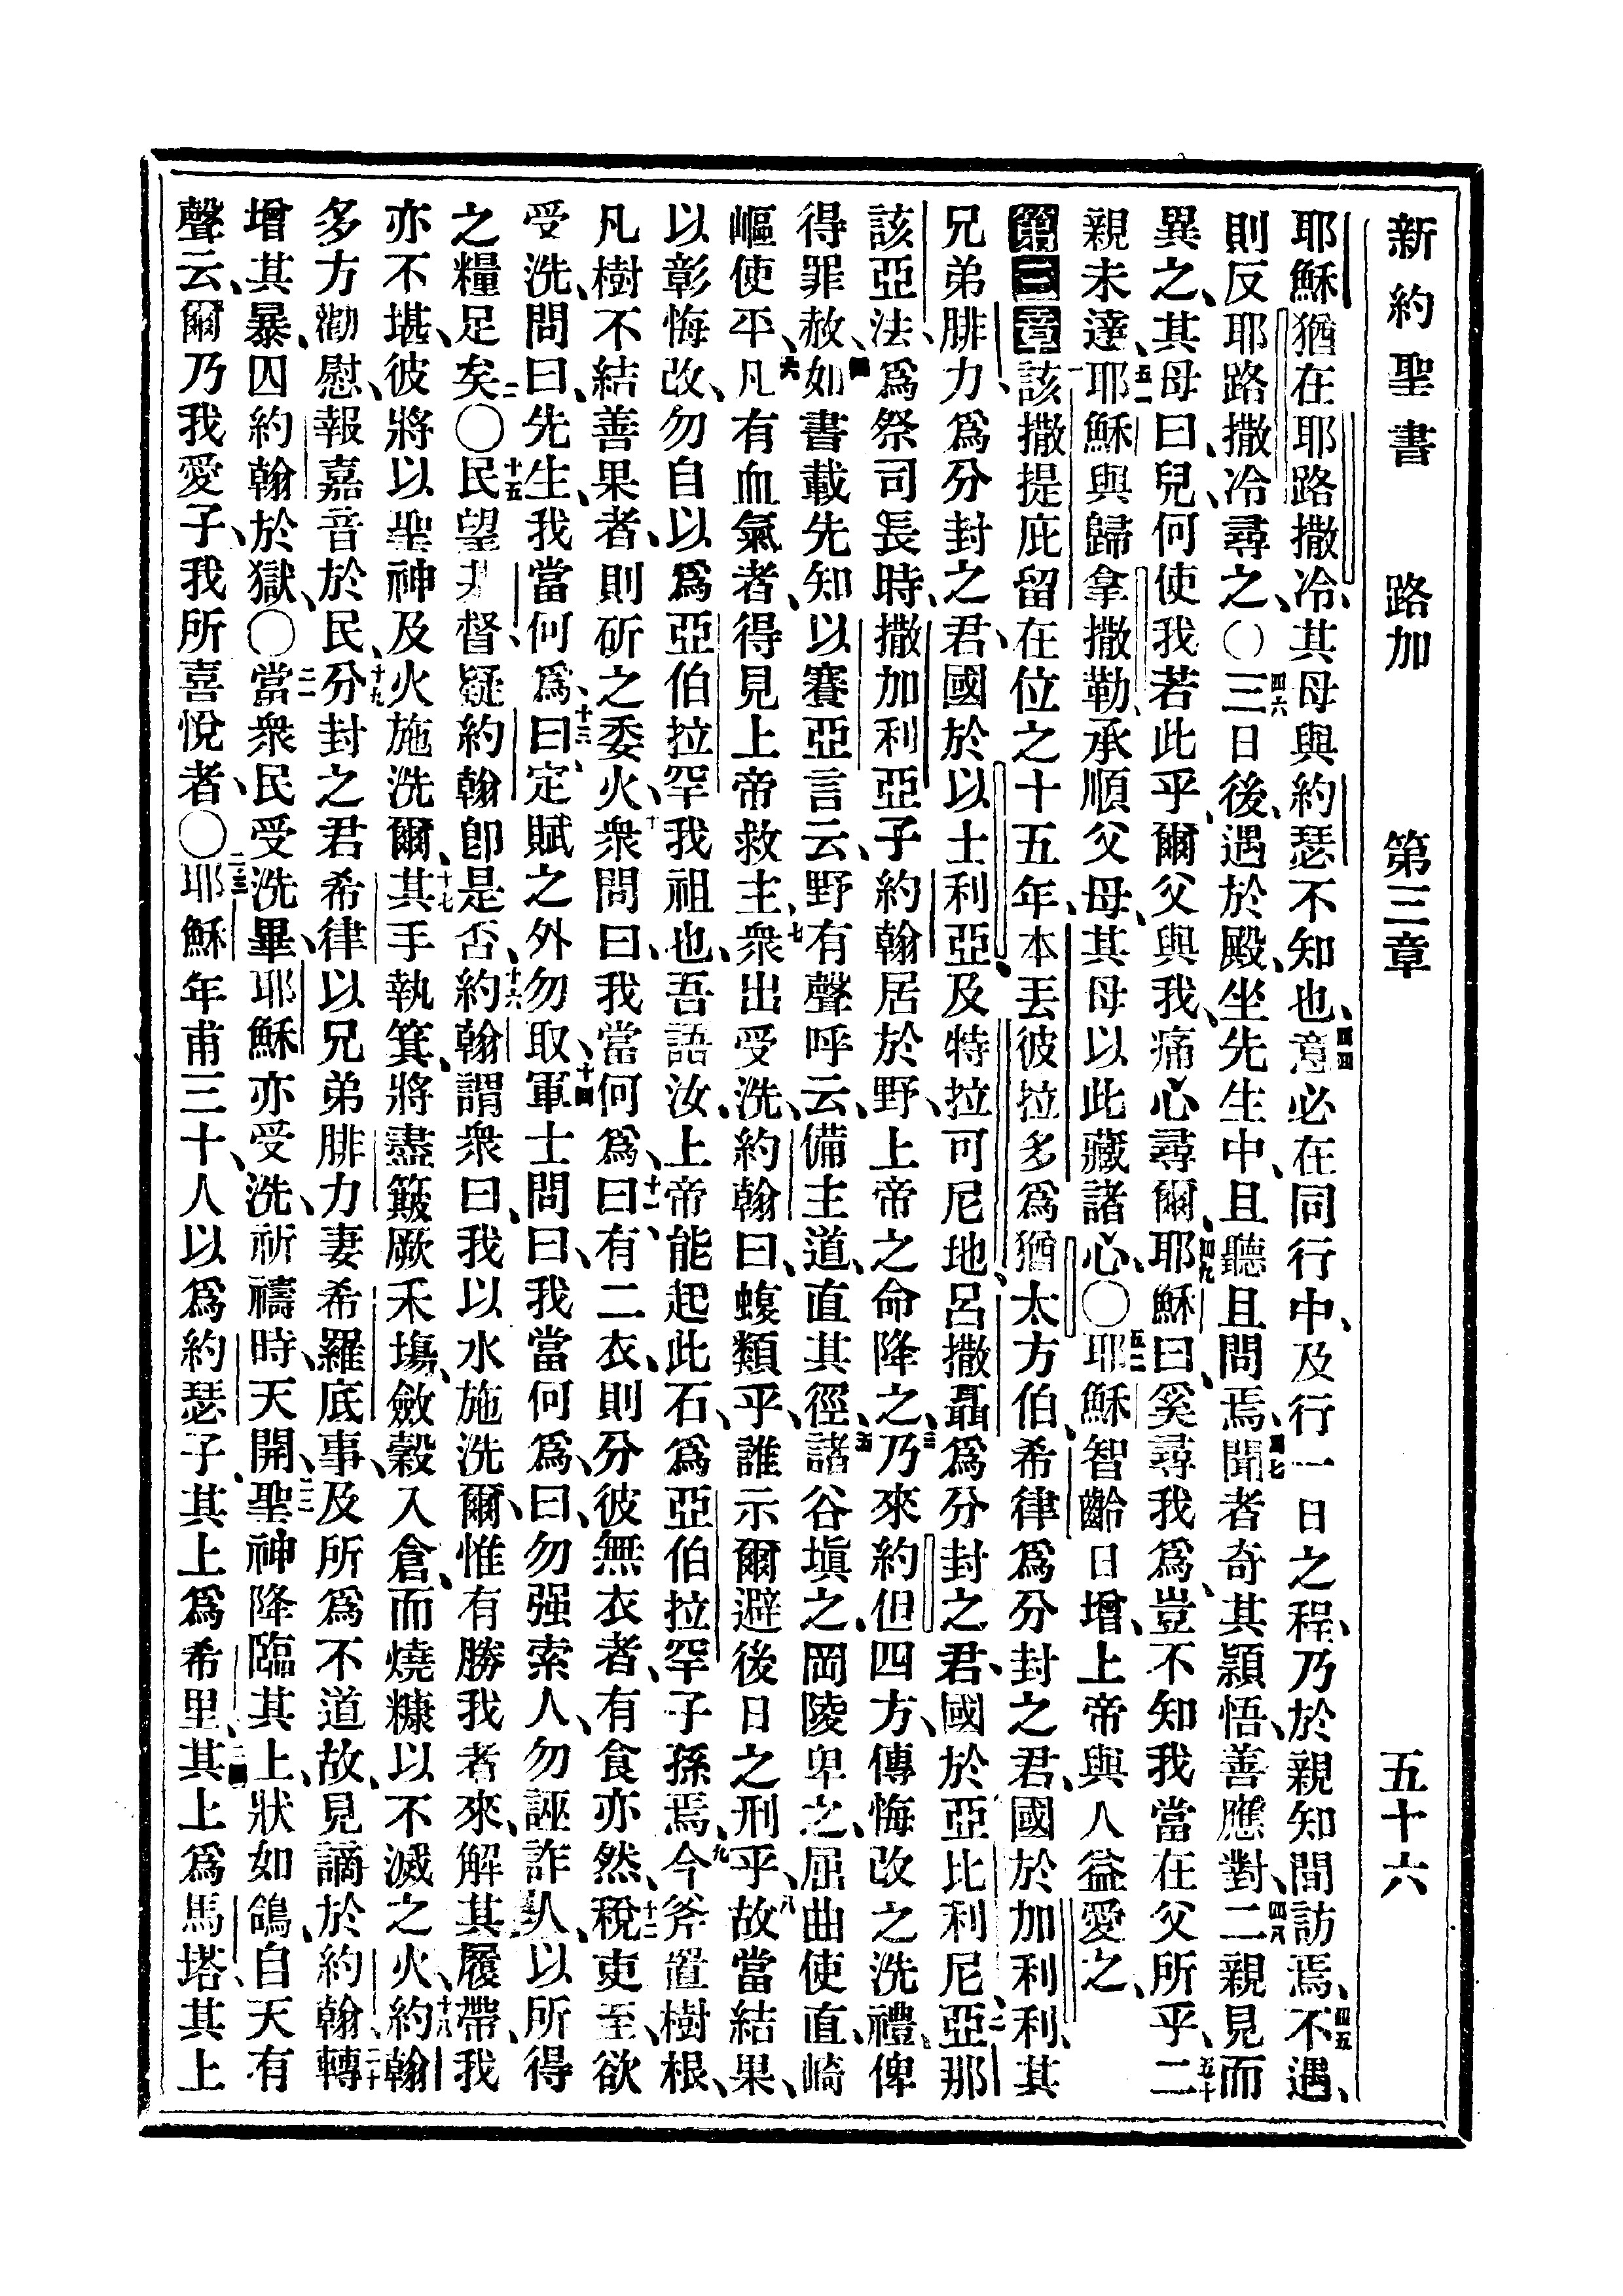 新約聖書 路加 第三章 五十六
耶穌猶在耶路撒冷、其母與約瑟不知也、四四意必在同行中、及行一日之程、乃於親知間訪焉、四五不遇、
則反耶路撒冷尋之、〇四六三日後、遇於殿、坐先生中、且聽且問焉、四七聞者奇其頴悟、善應對、四八二親見而
異之、其母曰、兒、何使我若此乎、爾父與我、痛心尋爾、四九耶穌曰、奚尋我爲、豈不知我當在父所乎、五十二
親未達、五一耶穌與歸拿撒勒、承順父母、其母以此藏諸心、〇五二耶穌智齡日增、上帝與人益愛之、
第三章一該撒提庇留在位之十五年、本丟彼拉多爲猶太方伯、希律爲分封之君、國於加利利、其
兄弟腓力、爲分封之君、國於以士利亞、及特拉可尼地、呂撒聶爲分封之君、國於亞比利尼亞、二那
該亞法、爲祭司長時、撒加利亞子約翰居於野、上帝之命降之、三乃來約但四方、傳悔改之洗禮、俾
得罪赦、四如書載先知以賽亞言云、野有聲呼云、備主道、直其徑、五諸谷塡之、岡陵卑之、屈曲使直、崎
嶇使平、六凡有血氣者、得見上帝救主、七衆出受洗、約翰曰、蝮類乎、誰示爾避後日之刑乎、八故當結果、
以彰悔改、勿自以爲亞伯拉罕我祖也、吾語汝、上帝能起此石、爲亞伯拉罕子孫焉、九今斧置樹根、
凡樹不結善果者、則斫之委火、十衆問曰、我當何爲、十一曰、有二衣、則分彼無衣者、有食亦然、十二稅吏至、欲
受洗、問曰、先生、我當何爲、十三曰、定賦之外勿取、十四軍士問曰、我當何爲、曰、勿强索人、勿誣詐人、以所得
之糧足矣、〇十五民望基督、疑約翰卽是否、十六約翰謂衆曰、我以水施洗爾、惟有勝我者來、解其履帶、我
亦不堪、彼將以聖神及火施洗爾、十七其手執箕、將盡簸厥禾塲、斂穀入倉、而燒糠以不滅之火、十八約翰
多方勸慰、報嘉音於民、十九分封之君希律、以兄弟腓力妻希羅底事、及所爲不道故、見謫於約翰、二十轉
增其暴、囚約翰於獄、〇二一當衆民受洗畢、耶穌亦受洗、祈禱時、天開、二二聖神降臨其上、狀如鴿、自天有
聲云、爾乃我愛子、我所喜悅者、〇二三耶穌年甫三十、人以爲約瑟子、其上爲希里、二四其上爲馬塔、其上